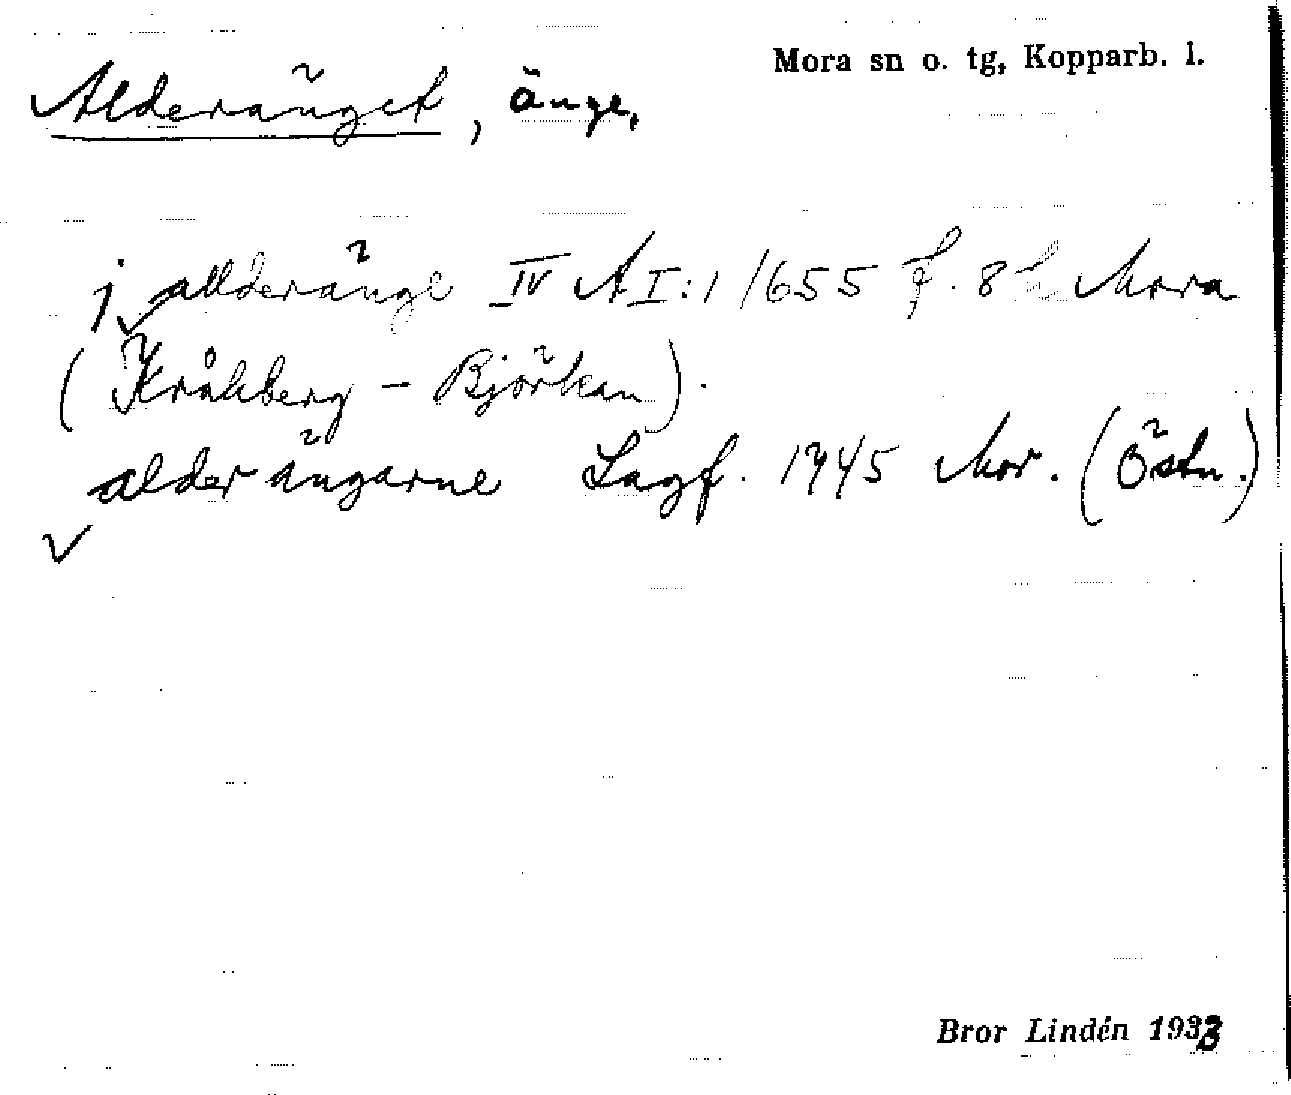 Mora sn o. tg, Kopparb. l.
Alderänget, änge,
j allderänge IV A I:1 1655 f. 82 Mora
(Kråkberg – Björkan).
alderängarne Lagf. 1745 Mor. (Östn.)
Bror Lindén 1933